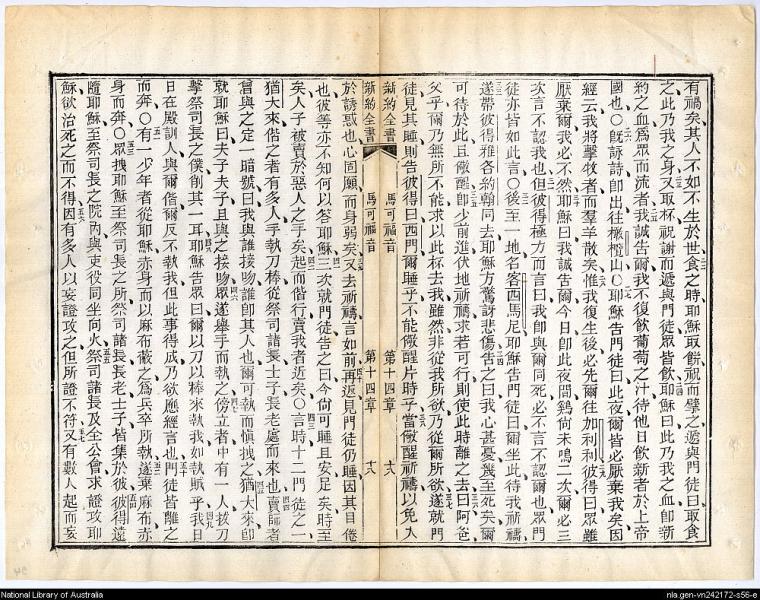 有禍矣其人不如不生於世食之時耶穌取餅祝而擘之遞與門徒曰取食
之此乃我之身又取杯祝謝而遞與門徒眾皆飲耶穌曰此乃我之血即新
約之血為眾而流者我誠告爾我不復飲葡萄之汁待他日飲新者於上帝
國也○既詠詩即出往橄欖山○耶穌告門徒曰此夜爾皆必厭棄我矣因
經云我將擊牧者而羣羊散矣惟我復生後必先爾往加利利彼得曰眾雖
厭棄爾我必不然耶穌曰我誠告爾今日即此夜間鷄尚未鳴二次爾必三
次言不認我也但彼得極力而言曰我即與爾同死必不言不認爾也眾門
徒亦皆如此言○後至一地名客西馬尼耶穌告門徒曰爾坐此待我祈禱
遂帶彼得雅各約翰同去耶穌方驚訝悲傷告之曰我心甚憂幾至死矣爾
可待於此且儆醒即少前進伏地祈禱求若可行則使此時離之去曰阿爸
父乎爾乃無所不能求以此杯去我雖然非從我所欲乃從爾所欲遂就門
徒見其睡則告彼得曰西門爾睡乎不能儆醒片時乎當儆醒祈禱以免入
新約全書 馬可福音 第十四章
新約全書 馬可福音 第十四章
於誘惑也心固願而身弱矣又去祈禱言如前再返見門徒仍睡因其目倦
也彼等亦不知何以答耶穌三次就門徒告之曰今尚可睡且安足矣時至
矣人子被賣於惡人之手矣起而偕行賣我者近矣○言時十二門徒之一
猶大來偕之者有多人手執刀棒從祭司諸長士子長老處而來也賣師者
曾與之定一暗號曰我與誰接吻誰即其人也爾可執而慎拽之猶大來即
就耶穌曰夫子夫子且與之接吻眾遂舉手而執之傍立者中有一人拔刀
擊祭司長之僕削其一耳耶穌告眾曰爾以刀以棒來執我如執賊乎我日
日在殿訓人與爾偕爾反不執我但此事得成乃欲應經言也門徒皆離之
而奔○有一少年者從耶穌赤身而以麻布蔽之為兵卒所執遂棄麻布赤
身而奔○眾拽耶穌至祭司長之所祭司諸長長老士子皆集於彼彼得遠
隨耶穌至祭司長之院內與吏役同坐向火祭司諸長及全公會求證攻耶
穌欲治死之而不得因有多人以妄證攻之但所證不符又有數人起而妄
National Library of Australia
nla.gen-vn242172-s56-e